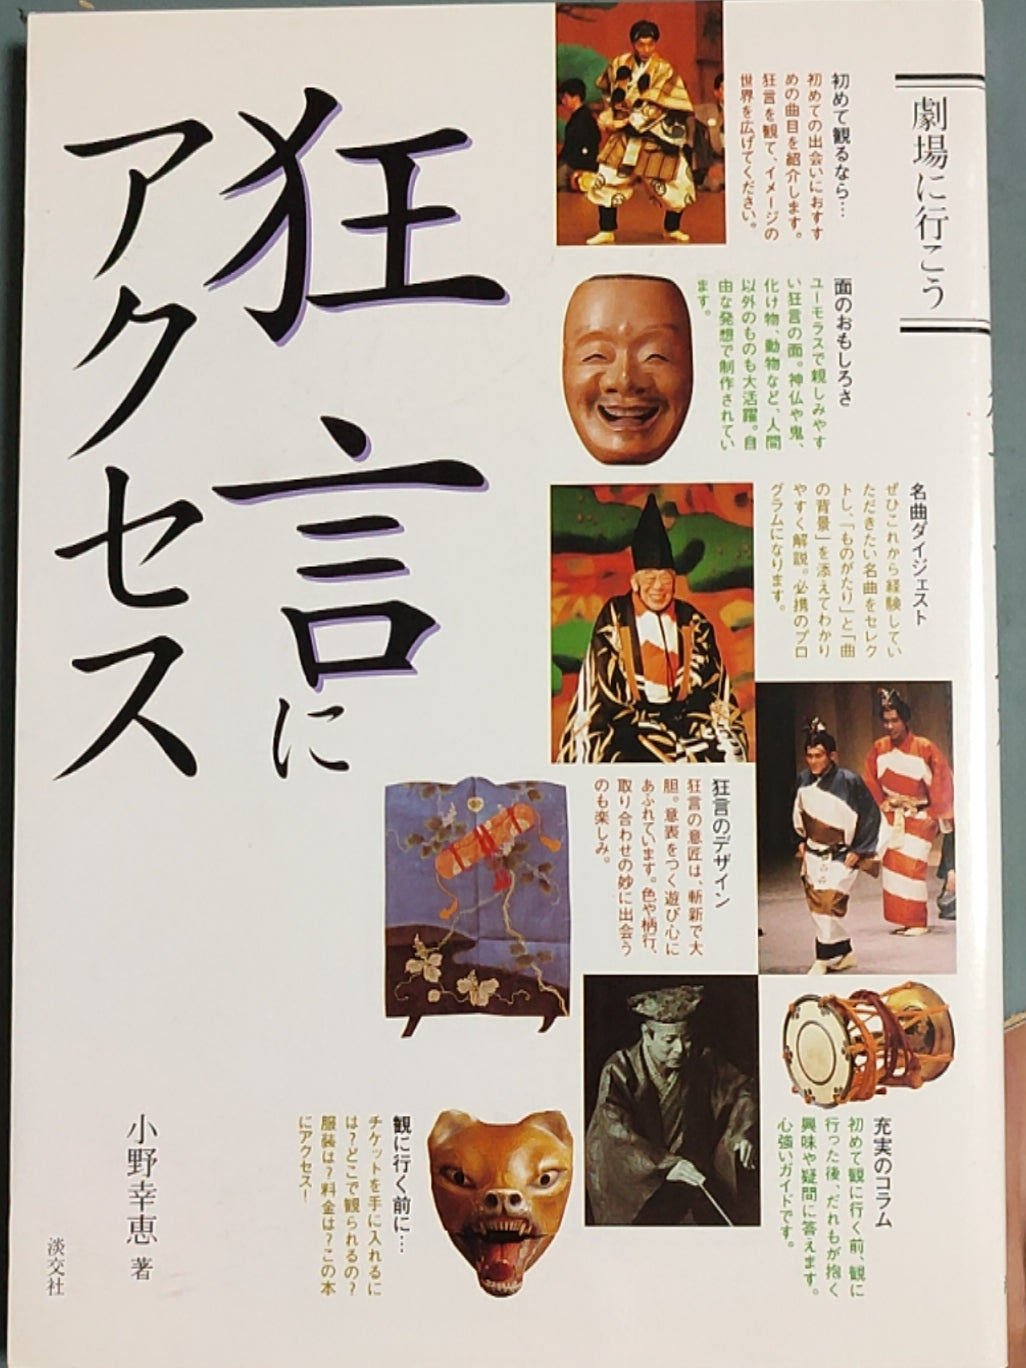 劇場に行こう
狂言に
アクセス
初めて観るなら…
初めての出会いにおすす
めの曲目を紹介します。
狂言を観て、イメージの
世界を広げてください。
面のおもしろさ
ユーモラスで親しみやす
い狂言の面。神仏や鬼、
化け物、動物など、人間
以外のものも大活躍。自
由な発想で制作されてい
ます。
名曲ダイジェスト
ぜひこれから経験してい
ただきたい名曲をセレク
トし、「ものがたり」と「曲
の背景」を添えてわかり
やすく解説。必携のプロ
グラムになります。
狂言のデザイン
狂言の意匠は、斬新で大
胆。意表をつく遊び心に
あふれています。色や柄行、
取り合わせの妙に出会う
のも楽しみ。
充実のコラム
初めて観に行く前、観に
行った後、だれもが抱く
興味や疑問に答えます。
心強いガイドです。
観に行く前に…
チケットを手に入れるに
は?どこで観られるの?
服装は?料金は?この本
にアクセス!
小野幸恵 著
淡交社